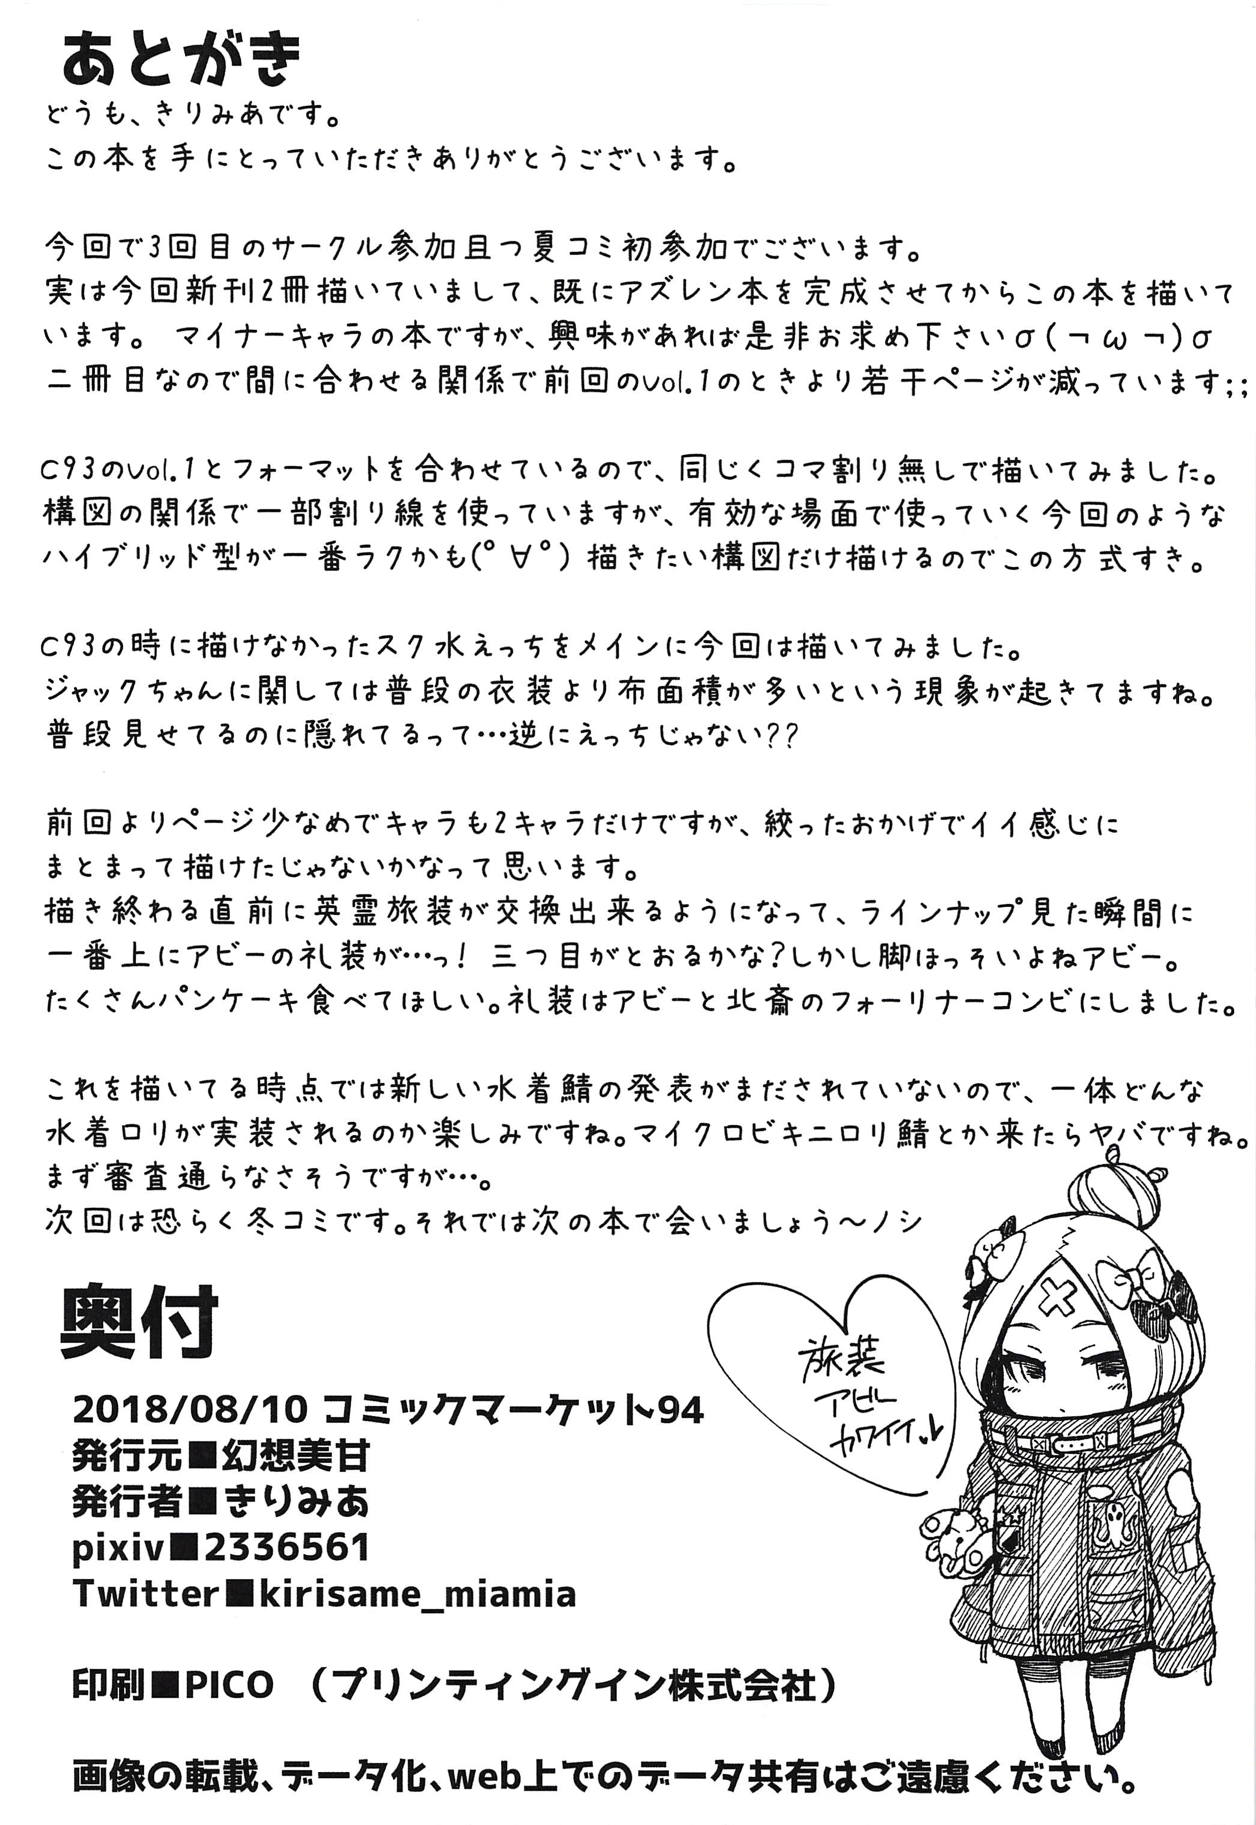 あとがき
どうも、きりみあです。
この本を手にとっていただきありがとうございます。
今回で3回目のサークル参加且つ夏コミ初参加でございます。
実は今回新刊2冊描いていまして、既にアズレン本を完成させてからこの本を描いて
います。 マイナーキャラの本ですが、興味があれば是非お求め下さいσ(¬ω¬)σ
二冊目なので間に合わせる関係で前回のvol.1のときより若干ページが減っています;;
C93のvol.1とフォーマットを合わせているので、同じくコマ割り無しで描いてみました。
構図の関係で一部割り線を使っていますが、有効な場面で使っていく今回のような
ハイブリッド型が一番ラクかも(ﾟ∀ﾟ) 描きたい構図だけ描けるのでこの方式すき。
C93の時に描けなかったスク水えっちをメインに今回は描いてみました。
ジャックちゃんに関しては普段の衣装より布面積が多いという現象が起きてますね。
普段見せてるのに隠れてるって…逆にえっちじゃない??
前回よりページ少なめでキャラも2キャラだけですが、絞ったおかげでイイ感じに
まとまって描けたじゃないかなって思います。
描き終わる直前に英霊旅装が交換出来るようになって、ラインナップ見た瞬間に
一番上にアビーの礼装が…っ! 三つ目がとおるかな?しかし脚ほっそいよねアビー。
たくさんパンケーキ食べてほしい。礼装はアビーと北斎のフォーリナーコンビにしました。
これを描いてる時点では新しい水着鯖の発表がまだされていないので、一体どんな
水着ロリが実装されるのか楽しみですね。マイクロビキニロリ鯖とか来たらヤバですね。
まず審査通らなさそうですが…。
次回は恐らく冬コミです。それでは次の本で会いましょう～ノシ
奥付
2018/08/10 コミックマーケット94
発行元■幻想美甘
発行者■きりみあ
pixiv■2336561
Twitter■kirisame_miamia
印刷■PICO （プリンティングイン株式会社）
画像の転載、データ化、web上でのデータ共有はご遠慮ください。
旅装
アビー
カワイイ♥